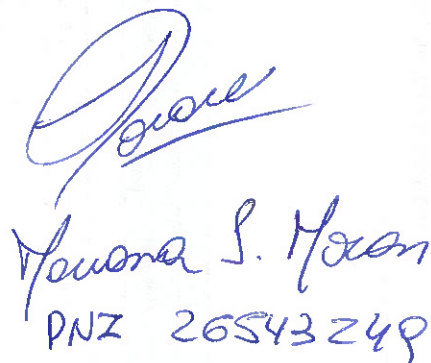 Mariana S. Moran
DNI 26543249